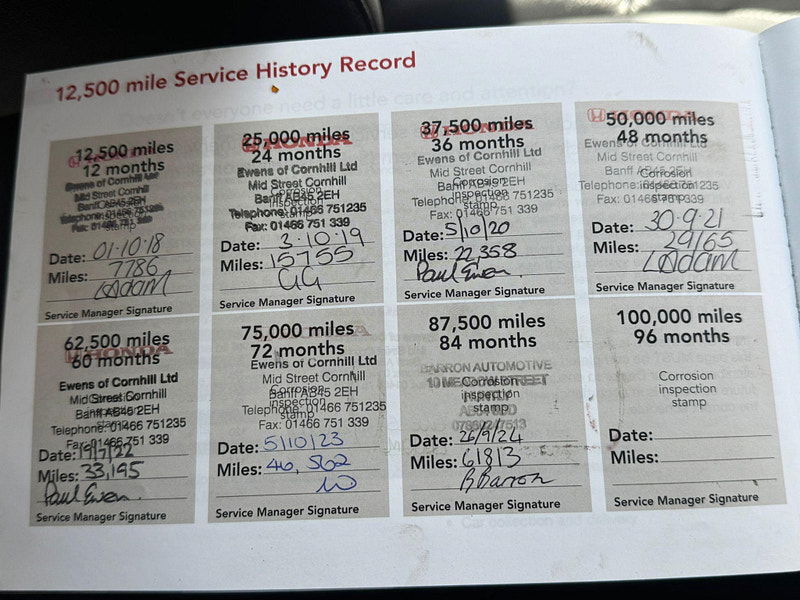 12,500 mile Service History Record
12,500 miles
12 months
Ewens of Cornhill Ltd
Mid Street Cornhill
Banff AB45 2EH
Telephone: 01466 751235
Fax: 01466 751 339
stamp
Date: 01.10.18
Miles: 7786
LAdam
Service Manager Signature
25,000 miles
24 months
HONDA
Ewens of Cornhill Ltd
Corrosion
Mid Street Cornhill
inspection
Banff AB45 2EH
stamp
Telephone: 01466 751235
Fax: 01466 751 339
Date: 3.10.19
Miles: 15755
GG
Service Manager Signature
37,500 miles
HONDA
36 months
Ewens of Cornhill Ltd
Mid Street Cornhill
Corrosion
Banff AB45 2EH
inspection
Telephone: 01466 751235
stamp
Fax: 01466 751 339
Date: 5/10/20
Miles: 22,358
Paul Ewen
Service Manager Signature
50,000 miles
HONDA
48 months
Ewens of Cornhill Ltd
Mid Street Cornhill
Corrosion
Banff AB45 2EH
inspection
Telephone: 01466 751235
stamp
Fax: 01466 751 339
Date: 30.9.21
Miles: 29165
LAdam
Service Manager Signature
62,500 miles
HONDA
60 months
Ewens of Cornhill Ltd
Mid Street Cornhill
Banff AB45 2EH
Telephone: 01466 751235
Fax: 01466 751 339
Date: 19/7/22
Miles: 33,195
Paul Ewen
Service Manager Signature
75,000 miles
72 months
Ewens of Cornhill Ltd
Mid Street Cornhill
Corrosion
Banff AB45 2EH
inspection
stamp
Telephone: 01466 751235
Fax: 01466 751 339
Date: 5/10/23
Miles: 46,562
Service Manager Signature
87,500 miles
84 months
BARRON AUTOMOTIVE
Corrosion
10 STREET
inspection
stamp
Date: 26/9/24
Miles: 61813
B Barron
Service Manager Signature
100,000 miles
96 months
Corrosion
inspection
stamp
Date:
Miles:
Service Manager Signature